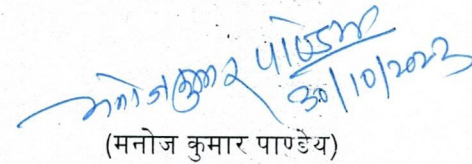 मनोज कुमार पाण्डेय
30/10/2023
(मनोज कुमार पाण्डेय)